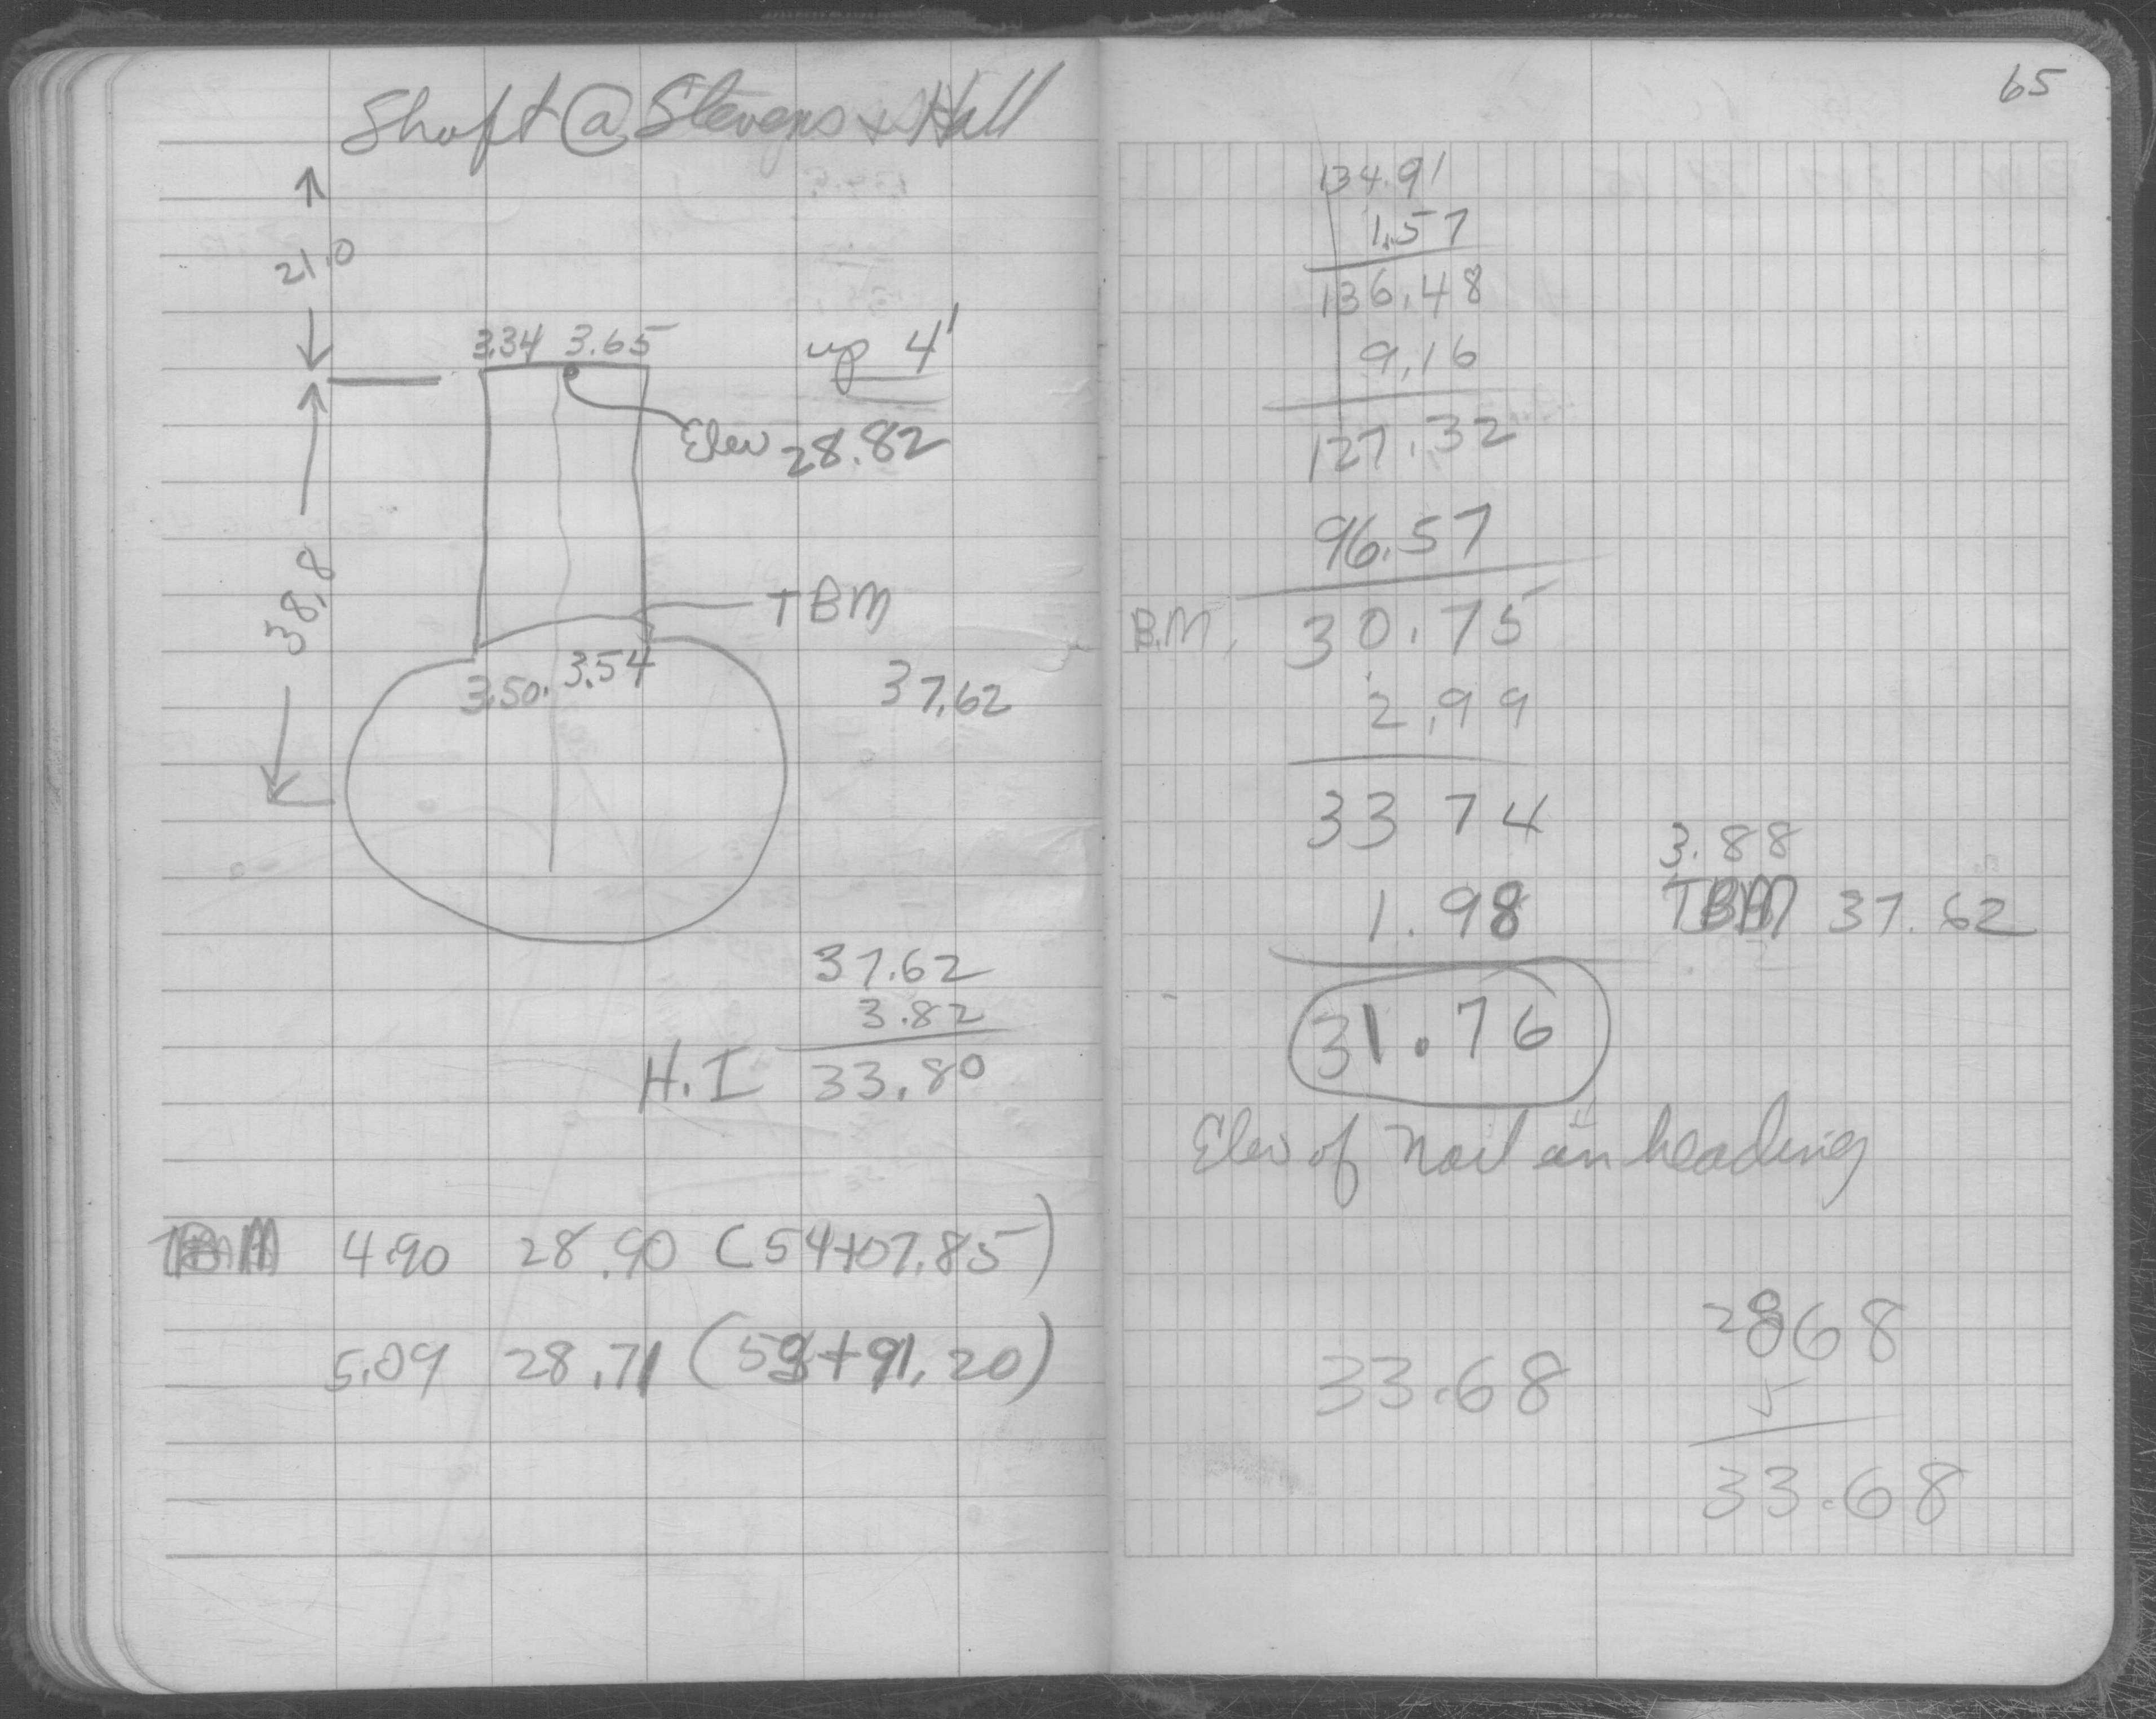 Shaft @ Stevens & Hall
21.0
3.34 3.65
up 4'
Elev 28.82
38.8
TBM
3.50. 3.54
37.62
37.62
3.82
H.I 33.80
TBM 4.90 28.90 (54+07.85)
5.09 28.71 (53+91.20)
65
134.91
1.57
136.48
9.16
127.32
96.57
B.M. 30.75
2.99
33 74
3.88
1.98 TBM 37.62
31.76
Elev of nail in heading
2868
33.68
5
33.68